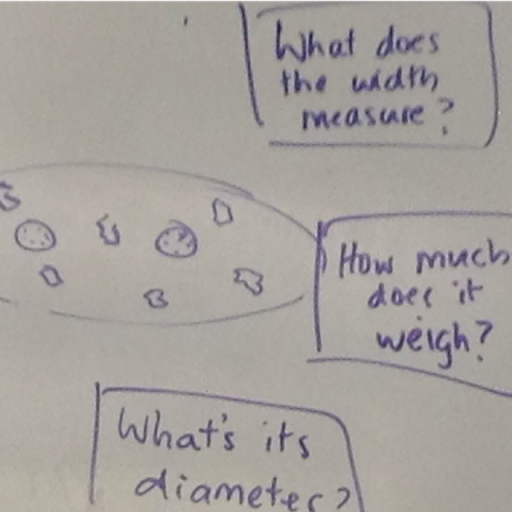 What does
the width
measure?
How much
does it
weigh?
What's its
diameter?